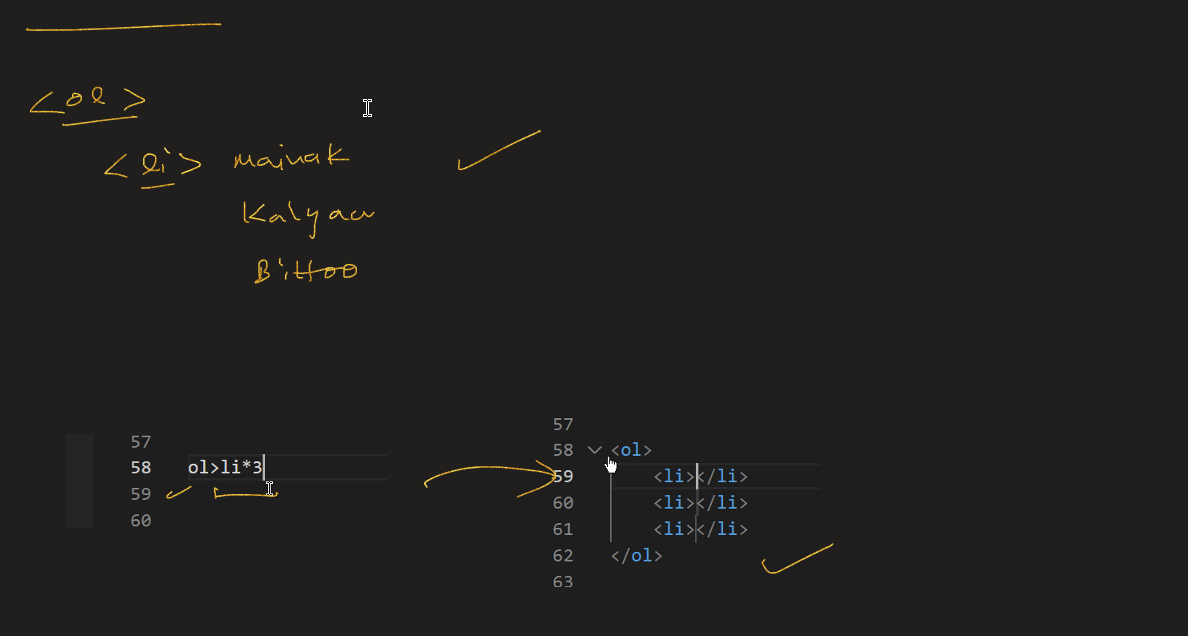 <ol>
<li> Mainak
Kalyan
Bittoo
57
58 ol>li*3
59
60
57
58 <ol>
59 <li></li>
60 <li></li>
61 <li></li>
62 </ol>
63